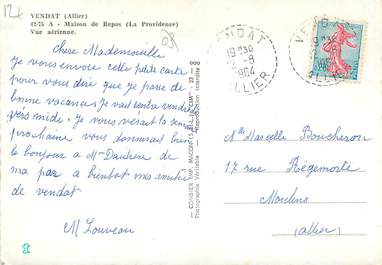 VENDAT (Allier)
42-75 A - Maison de Repos (La Providence)
Vue aérienne.
Chère Mademoiselle
je vous envoie cette petite carte
pour vous dire que je passe de
bonne vacances je vais rentre vendredi
vers midi. Je vous verait la semaine
prochaine vous donnerais bien
le bonjour a Mme Dautren de
ma par a bientot mes amitiés
de vendat
M Louveau
COMBIER IMP. MACON
Photographie Véritable - Reproduction Interdite
VENDAT
1964
ALLIER
VENDAT
Mlle Marcelle Boucheron
17 rue Régemorte
Moulins
(allier)